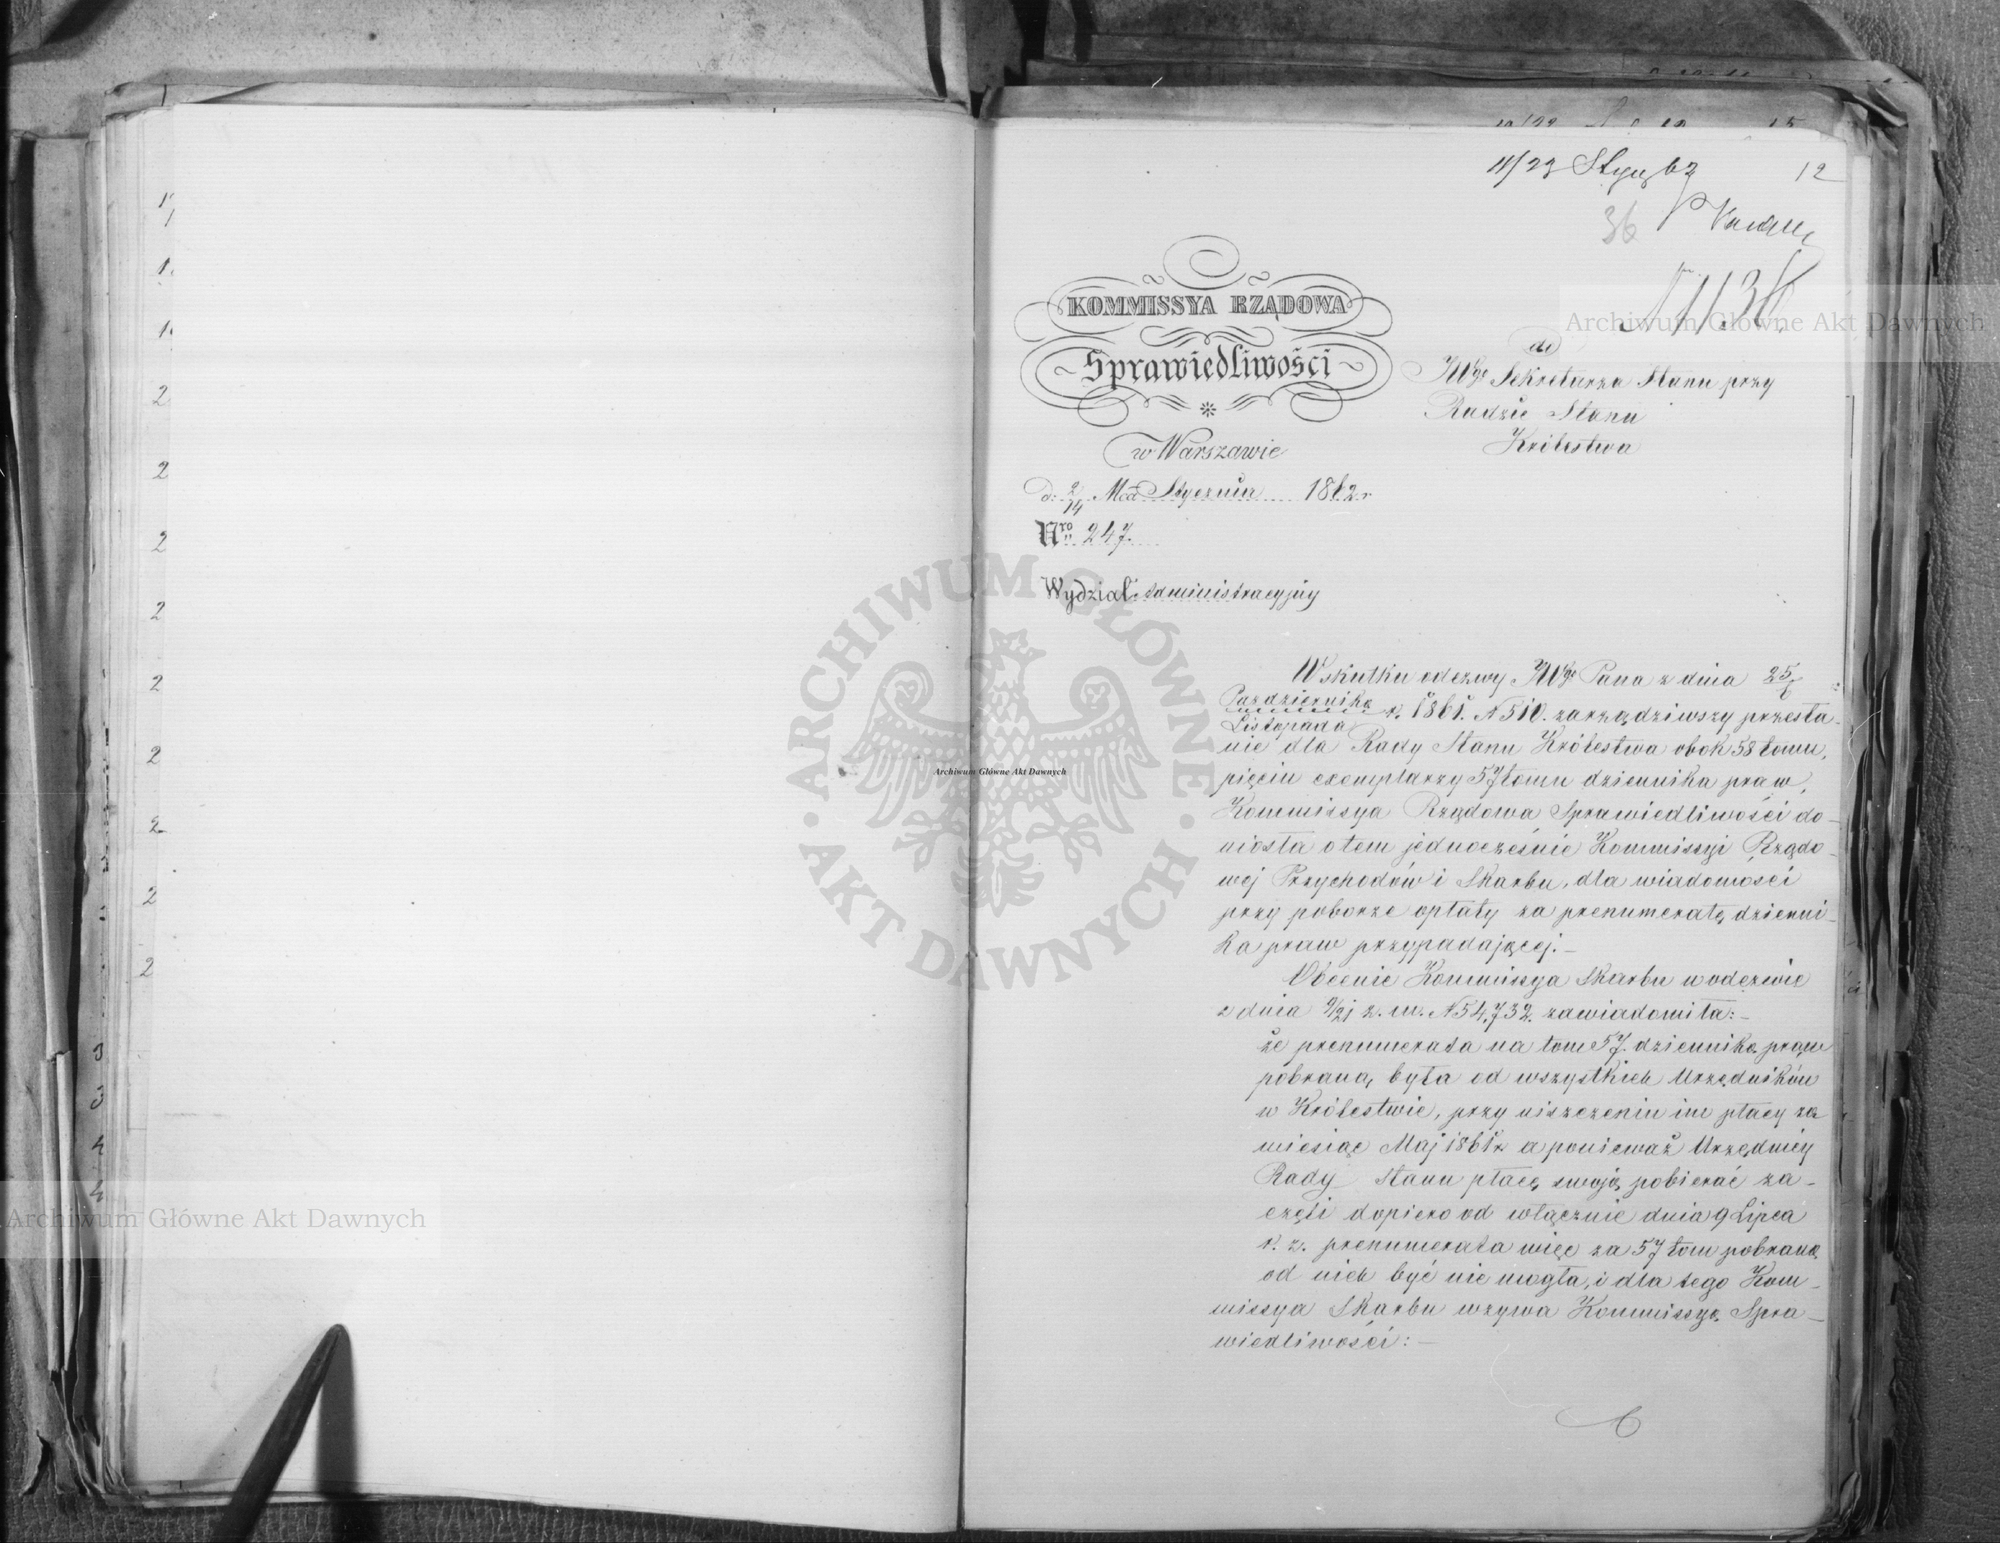 11/23 Stycz 62
12
36
N 1136
KOMMISSYA RZĄDOWA
Sprawiedliwości
w Warszawie
d: 2/14 Mca Stycznia 1862 r
Nro 247.
Wydział Administracyjny
do
JWgo Sekretarza Stanu przy
Radzie Stanu
Królestwa
W skutku odezwy JWgo Pana z dnia 25/6
Października
Listopada r. 1861. N 510. zarządziwszy przesła-
nie dla Rady Stanu Królestwa obok 58 tomu,
pięciu exemplarzy 57 tomu dziennika praw,
Kommissya Rządowa Sprawiedliwości do-
niosła o tem jednocześnie Kommissyi Rządo-
wej Przychodów i Skarbu, dla wiadomości
przy poborze opłaty za prenumeratę dzienni-
ka praw przypadającej.–
Obecnie Kommissya Skarbu w odezwie
z dnia 9/21 z. m. N 54,732. zawiadomiła:–
że prenumerata na tom 57. dziennika praw
pobraną była od wszystkich Urzędników
w Królestwie, przy uiszczeniu im płacy za
miesiąc Maj 1861 r. a ponieważ Urzędnicy
Rady Stanu płacę swoją pobierać za-
częli dopiero od włącznie dnia 9 Lipca
r. z. prenumerata więc za 57 tom pobraną
od nich być nie mogła, i dla tego Kom-
missya Skarbu wzywa Kommissyę Spra-
wiedliwości:–
Archiwum Główne Akt Dawnych
Archiwum Główne Akt Dawnych
Archiwum Główne Akt Dawnych
ARCHIWUM GŁÓWNE
AKT DAWNYCH